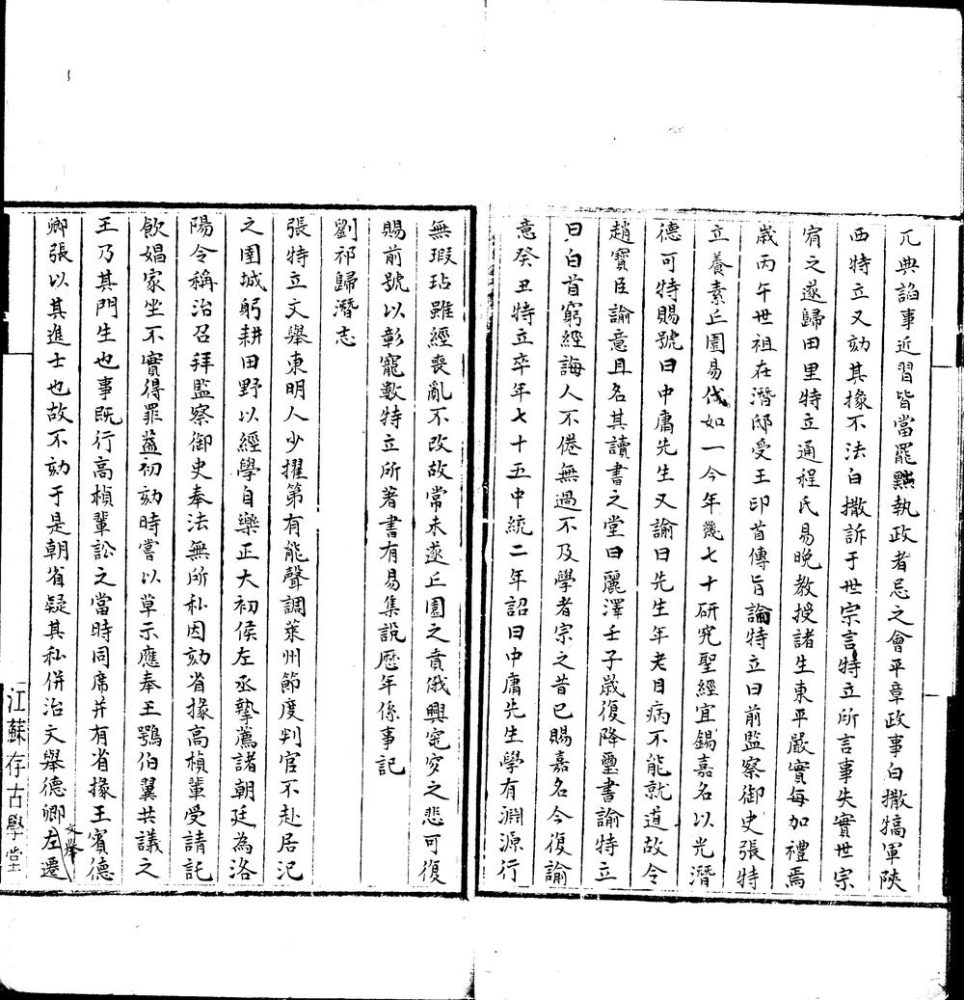 兀典諂事近習皆當罷黜執政者忌之會平章政事白撒犒軍陝
西特立又劾其掾不法白撒訴于世宗言特立所言事失實世宗
宥之遂歸田里特立通程氏易晚教授諸生東平嚴實每加禮焉
歲丙午世祖在潛邸受王印首傳旨諭特立曰前監察御史張特
立養素丘園易代如一今年幾七十研究聖經宜錫嘉名以光潛
德可特賜號曰中庸先生又諭曰先生年老目病不能就道故令
趙寶臣諭意且名其讀書之堂曰麗澤壬子歲復降璽書諭特立
曰白首窮經誨人不倦無過不及學者宗之昔已賜嘉名今復諭
意癸丑特立卒年七十五中統二年詔曰中庸先生學有淵源行
無瑕玷雖經喪亂不改故常未遂丘園之賁俄興窀穸之悲可復
賜前號以彰寵數特立所著書有易集說歷年係事記
劉祁歸潛志
張特立文舉東明人少擢第有能聲調萊州節度判官不赴居𣏌
之圉城躬耕田野以經學自樂正大初侯左丞摯薦諸朝廷為洛
陽令稱治召拜監察御史奉法無所私因劾省掾高楨輩受請託
飲娼家坐不實得罪蓋初劾時嘗以草示應奉王鶚伯翼共議之
王乃其門生也事既行高楨輩訟之當時同席并有省掾王賓德
卿張以其進士也故不劾于是朝省疑其私併治文舉德卿左遷
文舉
江蘇存古學堂